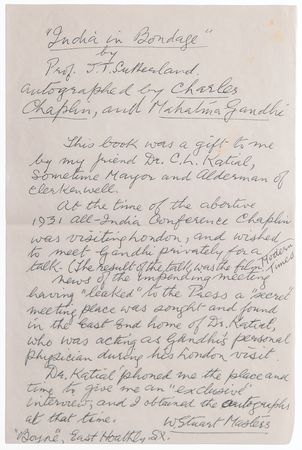 "India in Bondage"
by
Prof. J.T. Sutherland,
autographed by Charles
Chaplin, and Mahatma Gandhi
This book was a gift to me
by my friend Dr. C.L. Katial,
Sometime Mayor and Alderman of
Clerkenwell.
At the time of the abortive
1931 All-India Conference Chaplin
was visiting London, and wished
to meet Gandhi privately for a
talk. (The result of the talk was the film "Modern
Times")
News of the impending meeting
having "leaked" to the Press a secret
meeting place was sought and found
in the East End home of Dr. Katial,
who was acting as Gandhi's personal
physician during his London visit.
Dr. Katial phoned me the place and
time, to give me an "exclusive"
interview, and I obtained the autographs
at that time.
W Stuart Masters
East Hoathly, SX.